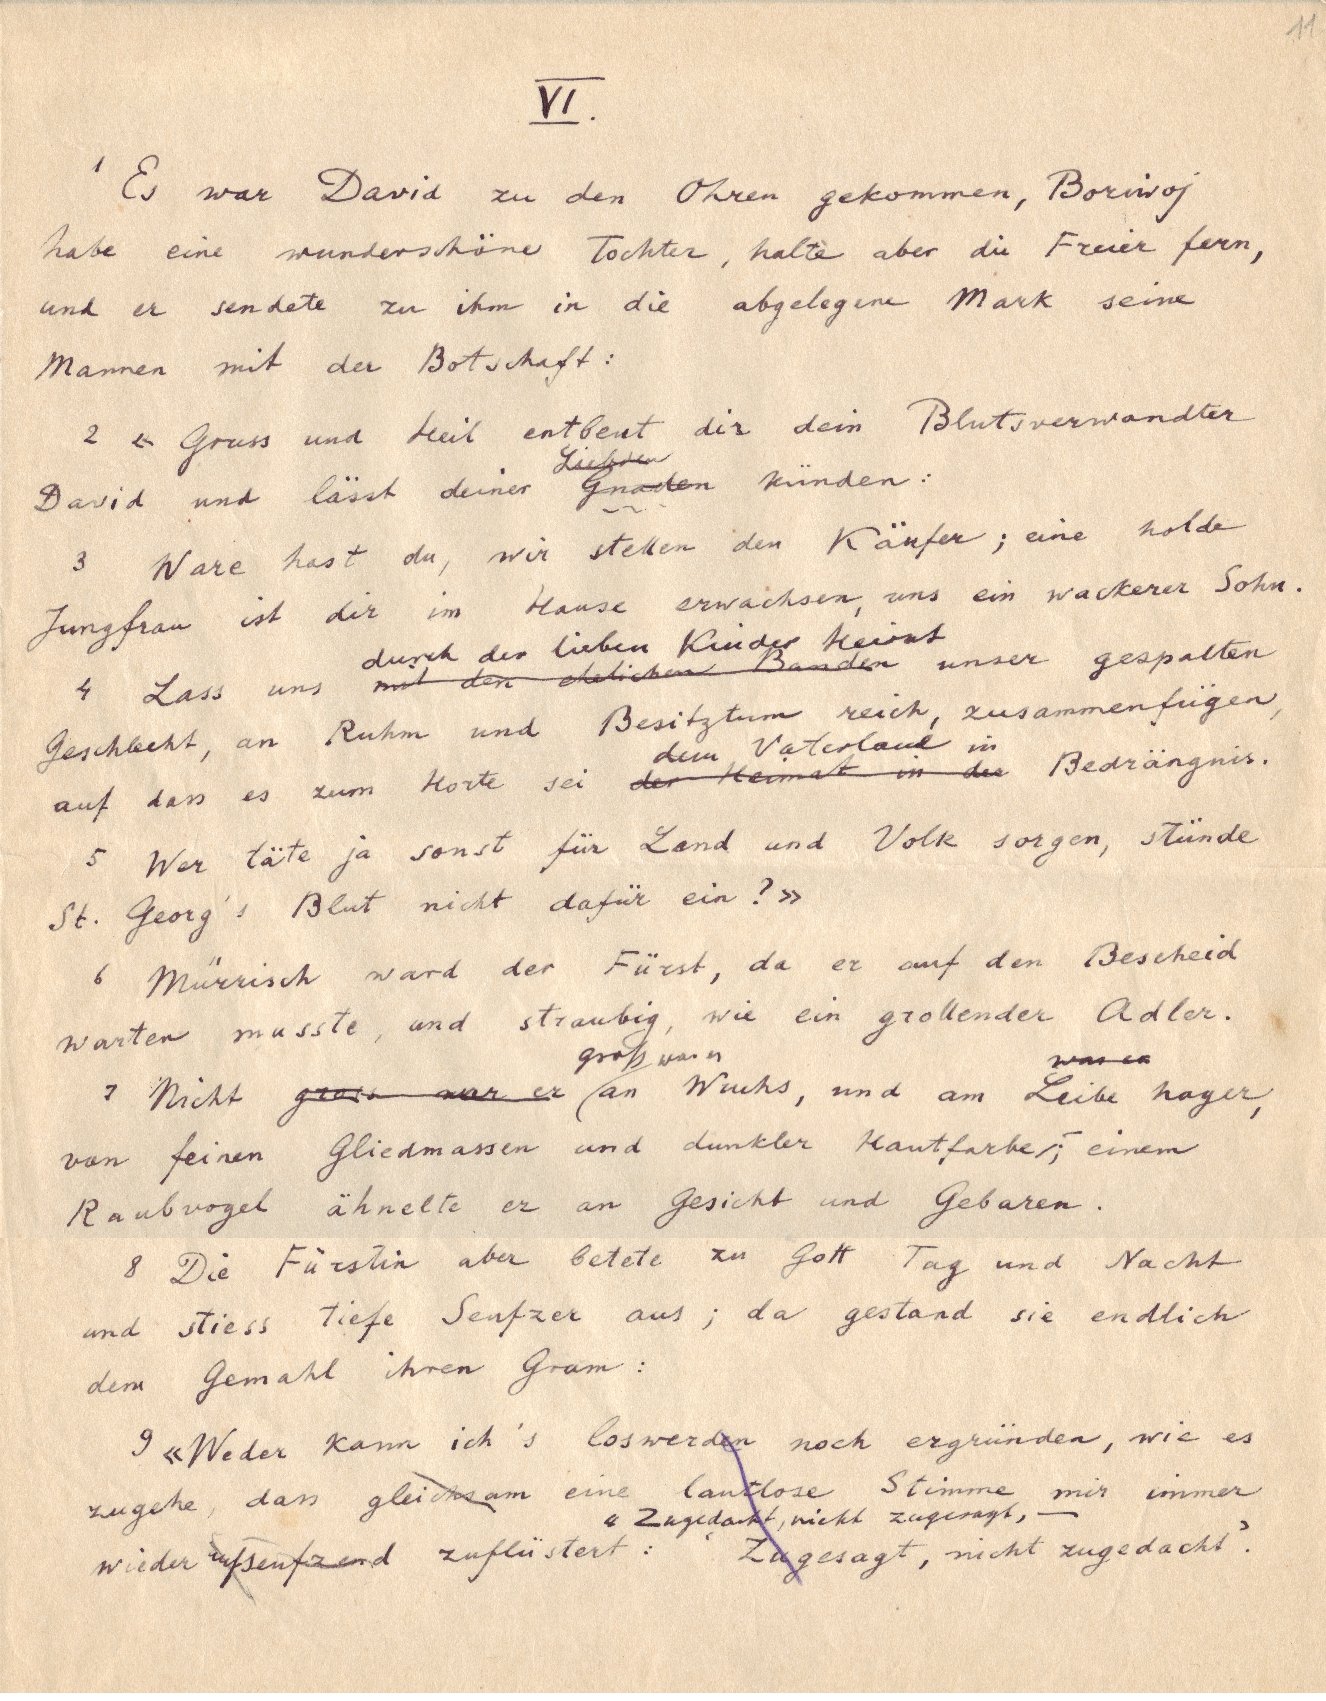 11
VI.
1 Es war David zu den Ohren gekommen, Boriwoj
habe eine wunderschöne Tochter, halte aber die Freier fern,
und er sendete zu ihm in die abgelegene Mark seine
Mannen mit der Botschaft:
2 « Gruss und Heil entbeut dir dein Blutsverwandter
Liebden
David und lässt deiner Gnaden künden:
3 Ware hast du, wir stellen den Käufer; eine holde
Jungfrau ist dir im Hause erwachsen, uns ein wackerer Sohn.
durch der lieben Kinder Heirat
4 Lass uns mit den ehelichen Banden unser gespalten
Geschlecht, an Ruhm und Besitztum reich, zusammenfügen,
dem Vaterland in
auf dass es zum Horte sei der Heimat in der Bedrängnis.
5 Wer täte ja sonst für Land und Volk sorgen, stünde
St. Georg's Blut nicht dafür ein?»
6 Mürrisch ward der Fürst, da er auf den Bescheid
warten musste, und straubig, wie ein grollender Adler.
groß war er war er
7 Nicht gross war er an Wuchs, und am Leibe hager,
von feinen Gliedmassen und dunkler Hautfarbe; einem
Raubvogel ähnelte er an Gesicht und Gebaren.
8 Die Fürstin aber betete zu Gott Tag und Nacht
und stiess tiefe Seufzer aus; da gestand sie endlich
dem Gemahl ihren Gram:
9 «Weder kann ich's loswerden noch ergründen, wie es
zugehe, dass gleichsam eine lautlose Stimme mir immer
« Zugedacht, nicht zugesagt, —
wieder aufseufzend zuflüstert: ‘Zugesagt, nicht zugedacht’.